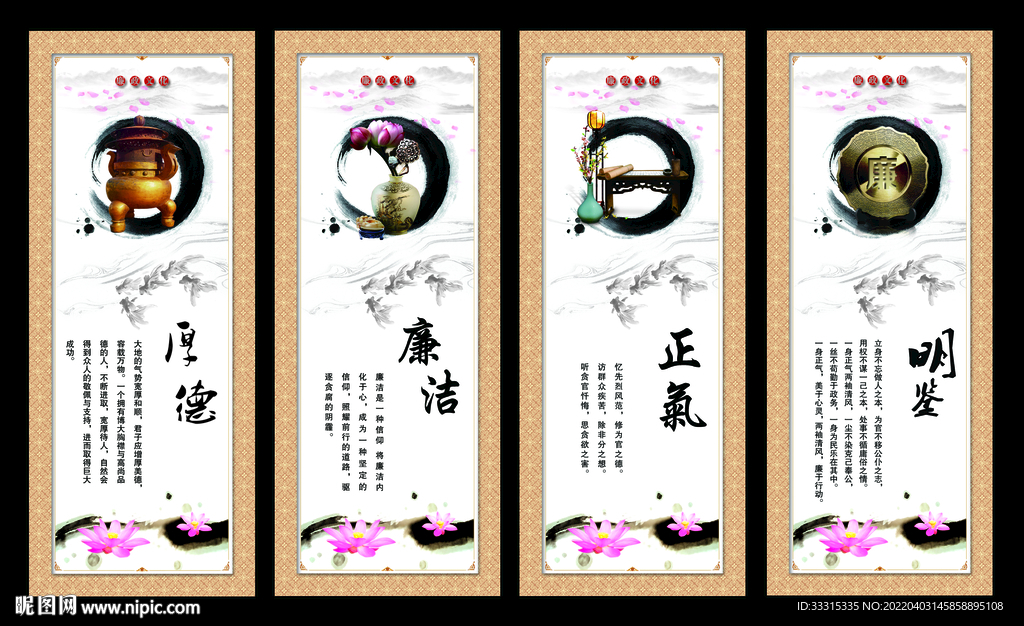 廉政文化
厚德
大地的气势宽厚和顺，君子应增厚美德，
容载万物。一个拥有博大胸襟与高尚品
德的人，不断进取，宽厚待人，自然会
得到众人的敬佩与支持，进而取得巨大
成功。
廉政文化
廉洁
廉洁是一种信仰 将廉洁内
化于心，成为一种坚定的
信仰，照耀前行的道路，驱
逐贪腐的阴霾。
廉政文化
正氣
忆先烈风范，修为官之德。
访群众疾苦，除非分之想。
听贪官忏悔，思贪欲之害。
廉政文化
廉
明鉴
立身不忘做人之本，为官不移公仆之志，
用权不谋一己之本，处事不循庸俗之情。
一身正气两袖清风，一尘不染克己奉公，
一丝不苟勤于政务，一身为民乐在其中。
一身正气，美于心灵，两袖清风，廉于行动。
昵图网 www.nipic.com
ID:33315335 NO:20220403145858895108